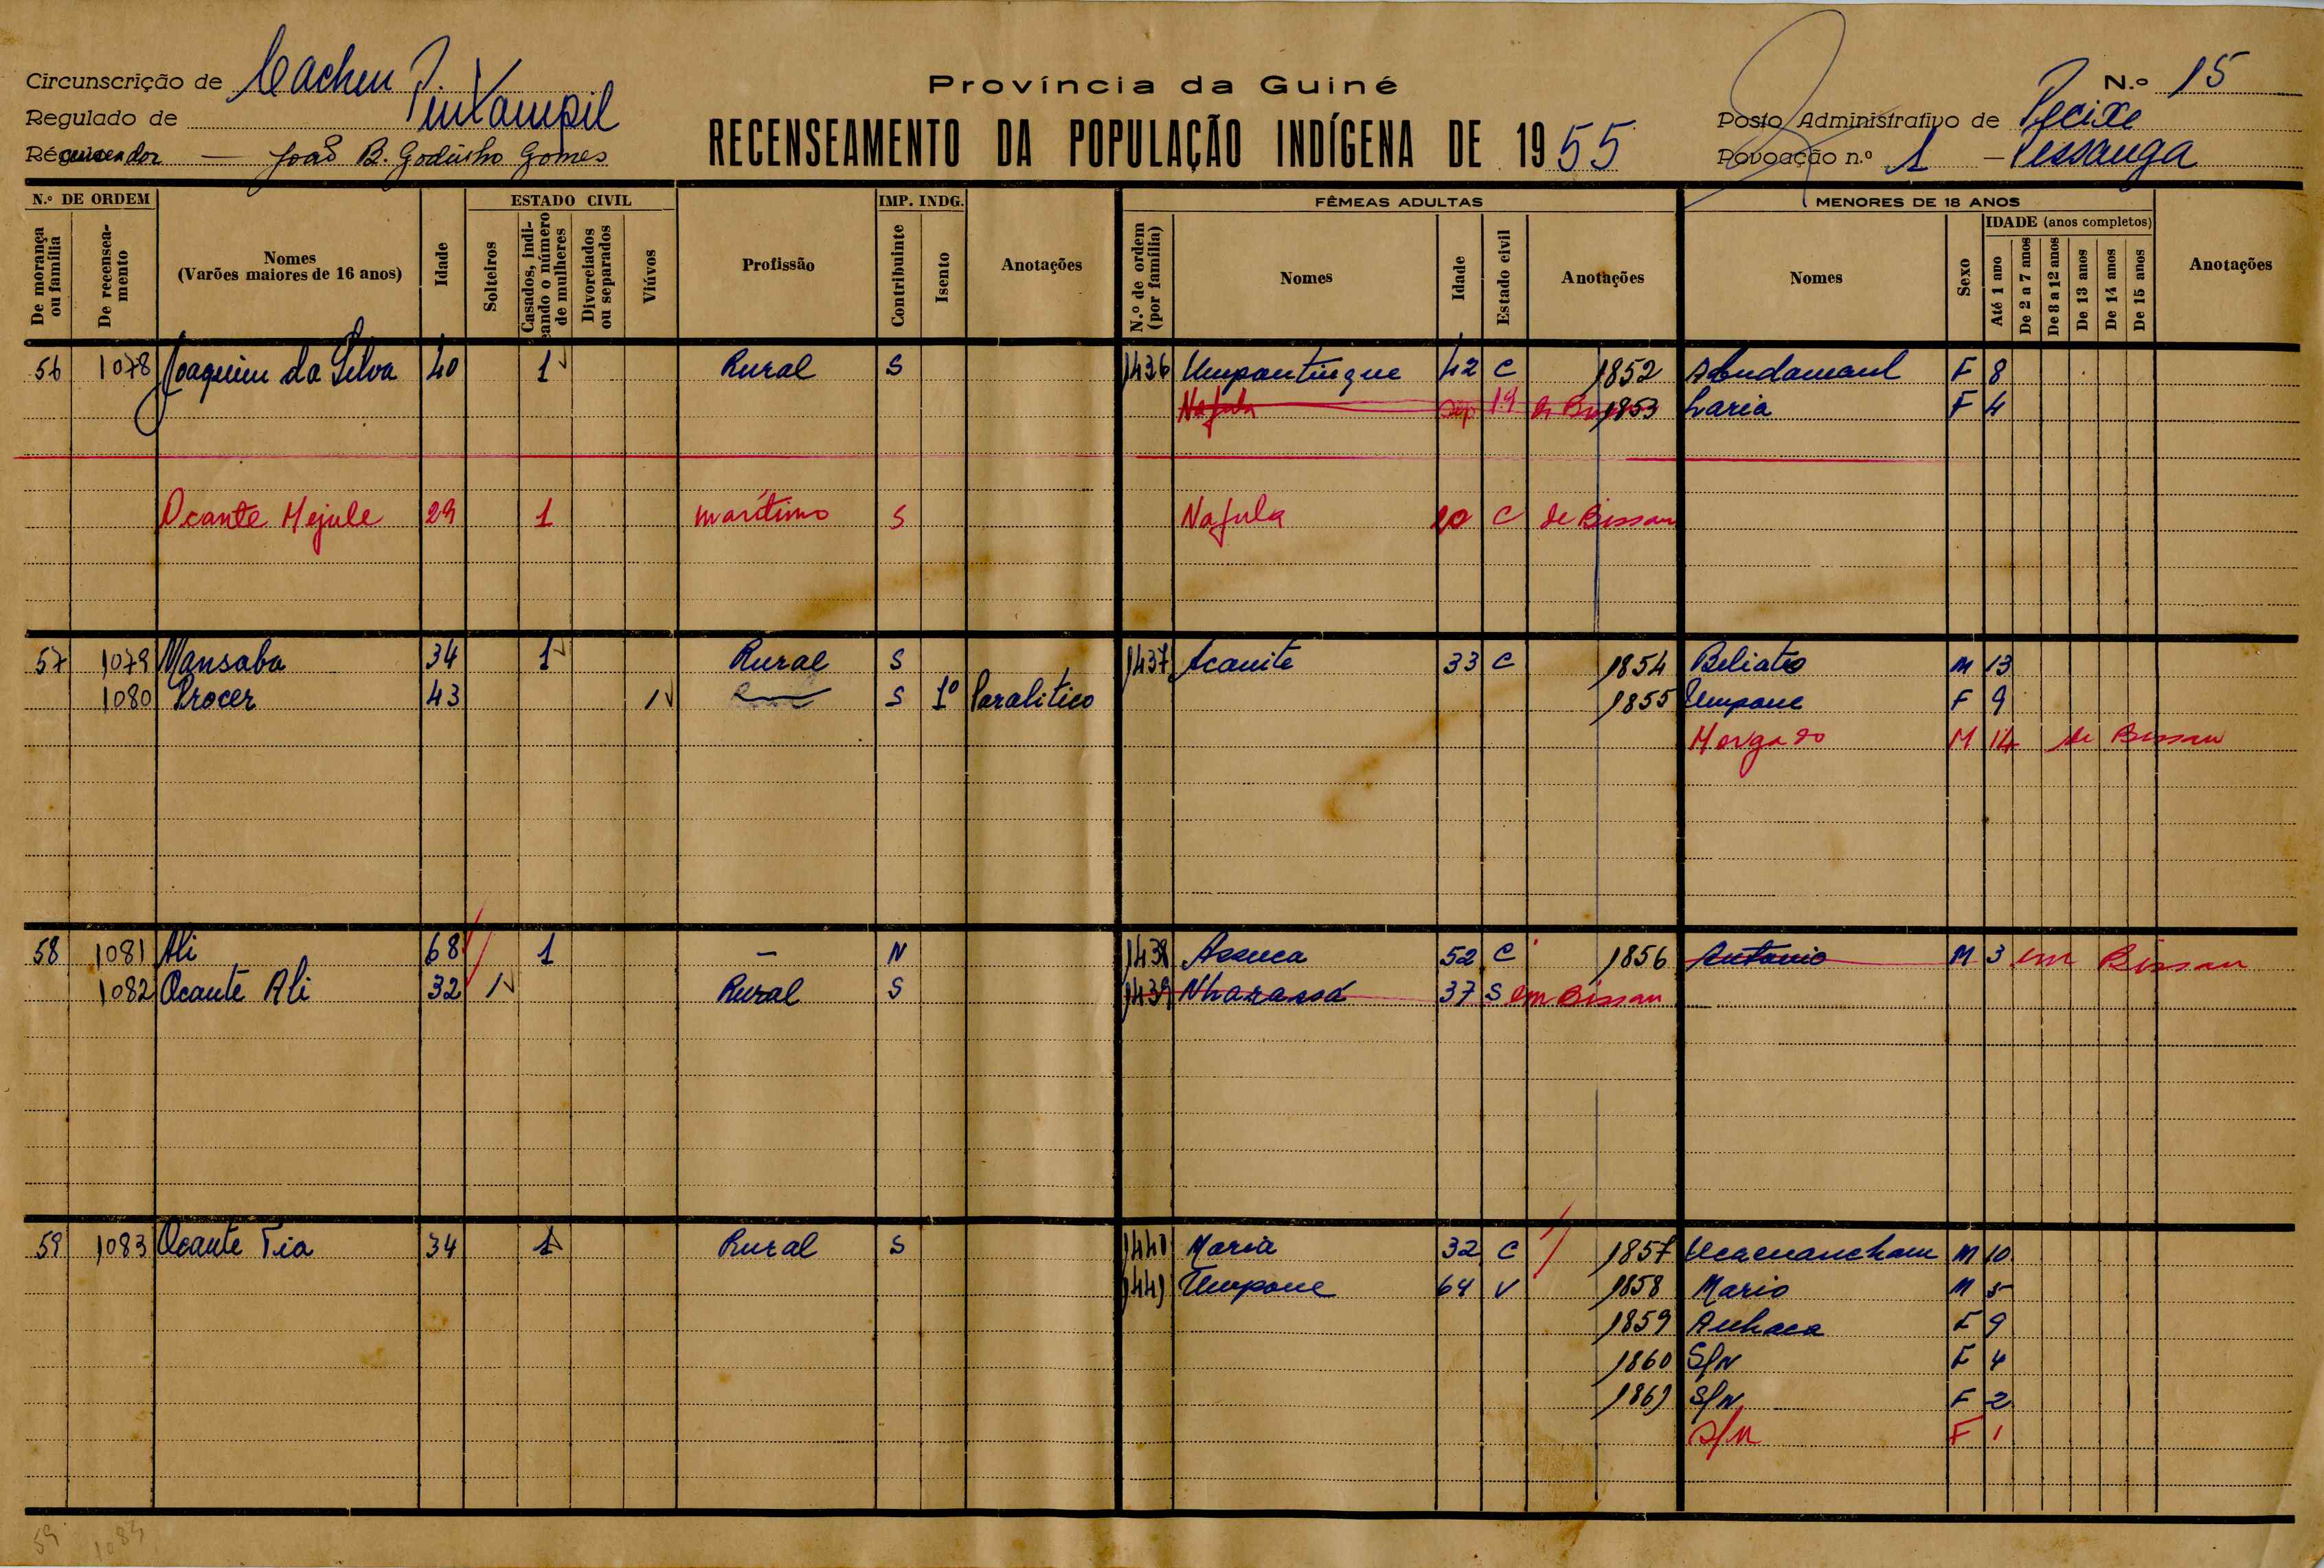 Circunscrição de Cacheu
Província da Guiné
N.º 15
Regulado de Pintampil
RECENSEAMENTO DA POPULAÇÃO INDÍGENA DE 1955
Posto Administrativo de Pecixe
Recenseador — João B. Godinho Gomes
Povoação n.º 1 – Pessanga
N.º DE ORDEM
ESTADO CIVIL
IMP. INDG.
FÊMEAS ADULTAS
MENORES DE 18 ANOS
De morança ou família
De recenseamento
Nomes
(Varões maiores de 16 anos)
Idade
Solteiros
Casados, indicando o número de mulheres
Divorciados ou separados
Viúvos
Profissão
Contribuinte
Isento
Anotações
N.º de ordem (por família)
Nomes
Idade
Estado civil
Anotações
Nomes
Sexo
IDADE (anos completos)
Até 1 ano
De 2 a 7 anos
De 8 a 12 anos
De 13 anos
De 14 anos
De 15 anos
Anotações
56 1078 Joaquim da Silva 40 1 Rural S 1436 Umpontingue 42 C 1852 Abudamaul F 8
Nafula 19 1853 Laria F 4
Ocante Mejule 29 1 marítimo S Nafula 20 C de Bissau
57 1079 Mansaba 34 1 Rural S 1437 Acanite 33 C 1854 Beliato M 13
1080 Procer 43 1 S 1º Paralitico 1855 Umpane F 9
Morgado M 14 de Bissau
58 1081 Ali 68 1 – N 1438 Assuca 52 C 1856 Antonio M 3 em Bissau
1082 Ocante Ali 32 1 Rural S 1439 Nharassá 37 S em Bissau
59 1083 Ocante Tia 34 1 Rural S 1440 Maria 32 C 1857 M 10
1441 Umpane 64 V 1858 Mario M 5
1859 Anhaca F 9
1860 S/N F 4
1861 S/N F 2
S/N F 1
59 1083